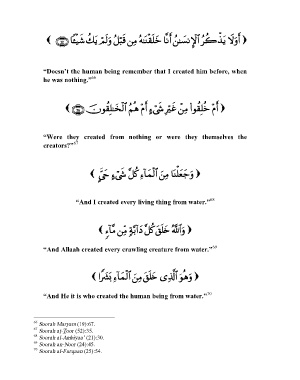 ﴿ أَوَلَا يَذْكُرُ الْإِنسَـٰنُ أَنَّا خَلَقْنَـٰهُ مِن قَبْلُ وَلَمْ يَكُ شَيْـًٔا ﴾
“Doesn’t the human being remember that I created him before, when
he was nothing.”⁶⁶
﴿ أَمْ خُلِقُوا۟ مِنْ غَيْرِ شَىْءٍ أَمْ هُمُ الْخَـٰلِقُونَ ﴾
“Were they created from nothing or were they themselves the
creators?”⁶⁷
﴿ وَجَعَلْنَا مِنَ الْمَآءِ كُلَّ شَىْءٍ حَىٍّ ﴾
“And I created every living thing from water.”⁶⁸
﴿ وَاللَّهُ خَلَقَ كُلَّ دَآبَّةٍ مِّن مَّآءٍ ﴾
“And Allaah created every crawling creature from water.”⁶⁹
﴿ وَهُوَ الَّذِى خَلَقَ مِنَ الْمَآءِ بَشَرًا ﴾
“And He it is who created the human being from water.”⁷⁰
⁶⁶ Soorah Maryam (19):67.
⁶⁷ Soorah at-Toor (52):35.
⁶⁸ Soorah al-Ambiyaa’ (21):30.
⁶⁹ Soorah an-Noor (24):45.
⁷⁰ Soorah al-Furqaan (25):54.